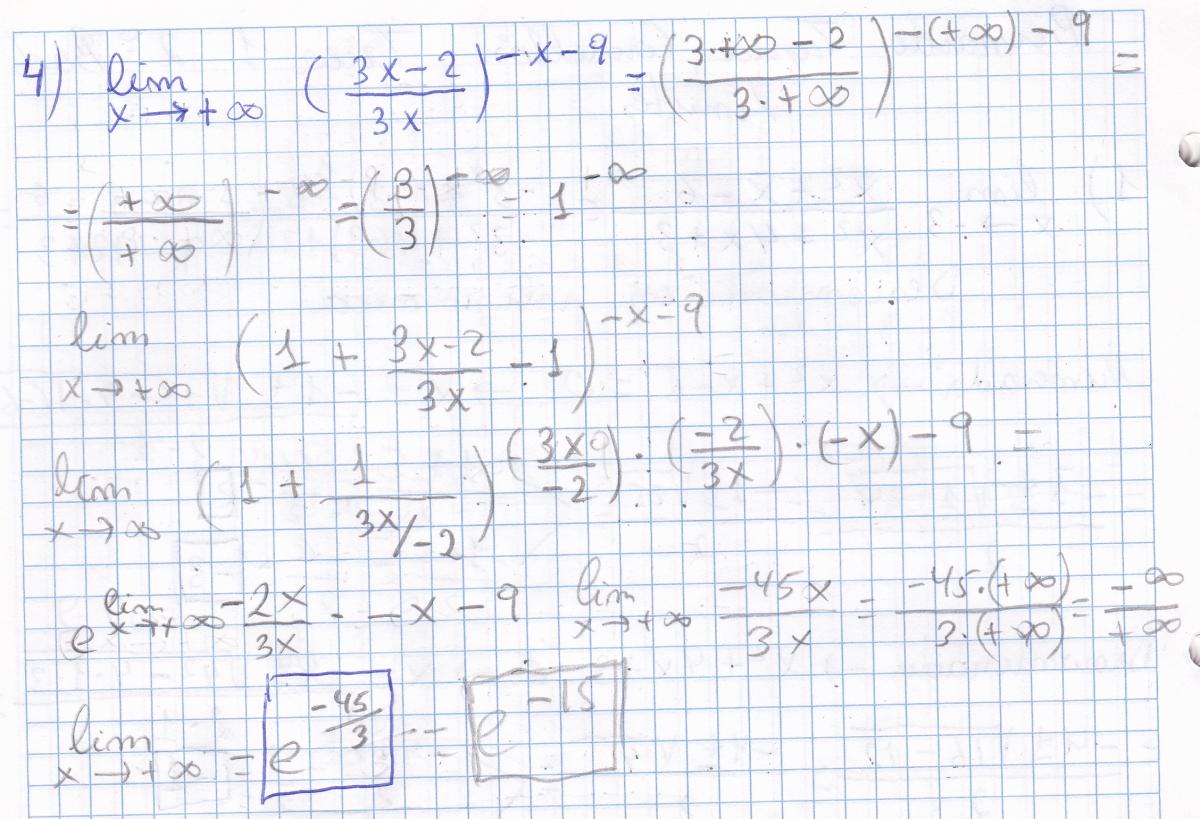 4) lim x→+∞ ( (3x-2)/(3x) )^(-x-9) = ( (3·+∞ - 2)/(3·+∞) )^(-(+∞)-9) =
= ( (+∞)/(+∞) )^(-∞) = (3/3)^(-∞) = 1^(-∞)
lim x→+∞ ( 1 + (3x-2)/(3x) - 1 )^(-x-9)
lim x→∞ ( 1 + 1/(3x/-2) )^((3x/-2)·(-2/3x)·(-x)-9) =
e^(lim x→+∞ (-2x)/(3x) · -x - 9) lim x→+∞ (-45x)/(3x) = (-45·(+∞))/(3·(+∞)) = (-∞)/(+∞)
lim x→+∞ = e^(-45/3) = e^(-15)